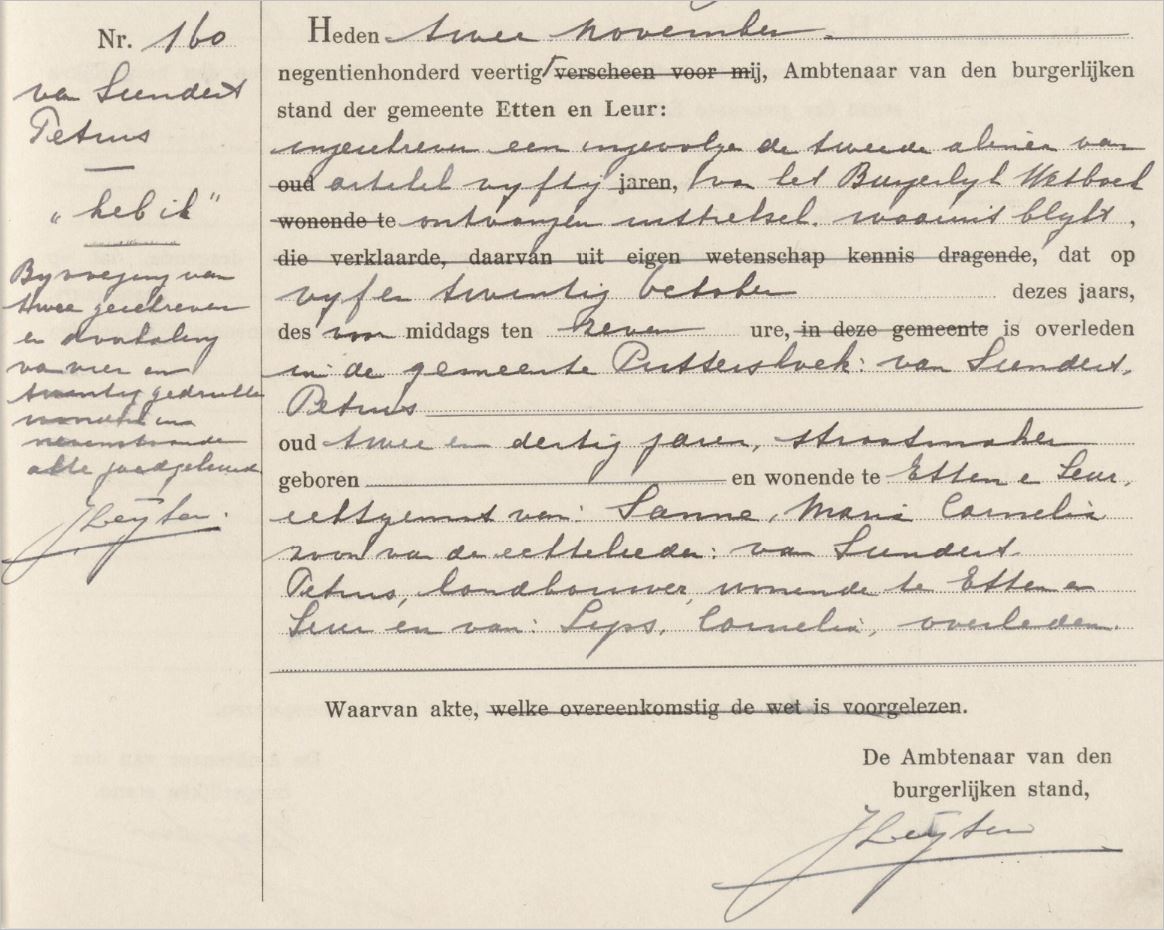 Nr. 160
van Sundert
Petrus
"heb ik"
Byvoeging van
twee geschreven
en doorhaling
van vier en
twintig gedrukte
woorden in
nevenstaande
akte goedgekeurd
JLeijten.
Heden twee November
negentienhonderd veertig verscheen voor mij, Ambtenaar van den burgerlijken
stand der gemeente Etten en Leur:
ingeschreven een ingevolge de tweede alinea van
oud artikel vyftig jaren, van het Burgerlyk Wetboek
wonende te ontvangen uittreksel. waaruit blykt,
die verklaarde, daarvan uit eigen wetenschap kennis dragende, dat op
vyf en twintig October dezes jaars,
des voor middags ten zeven ure, in deze gemeente is overleden
in de gemeente Puttershoek: van Sundert,
Petrus
oud twee en dertig jaren, straatmaker
geboren en wonende te Etten e Leur,
echtgenoot van: Sanne, Maria Cornelia
zoon van de echtelieden: van Sundert
Petrus, landbouwer, wonende te Etten en
Leur en van: Lips, Cornelia, overleden.
Waarvan akte, welke overeenkomstig de wet is voorgelezen.
De Ambtenaar van den
burgerlijken stand,
JLeijten